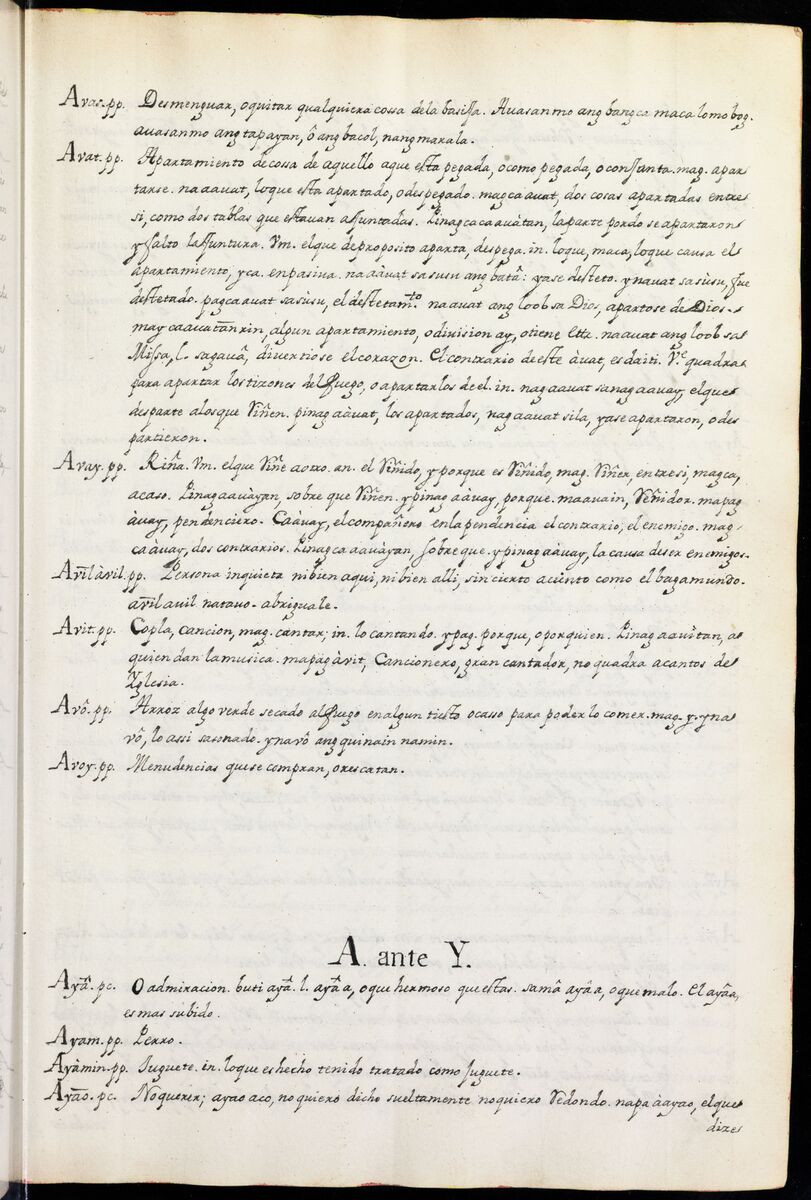 Avas. pp. Desmenguar, o quitar qualquiera cossa de la basissa. Auasan mo ang bangca maca lomobog.
auasan mo ang tapayan, ô ang bacol, nang marala.
Avat. pp. Apartamiento de cossa de aquello aque esta pegada, o como pegada, o conssunta. mag. apar
tarse. naauat, loque esta apartado, o despegado. magcaauat, dos cosas apartadas entre
si, como dos tablas que estavan assuntadas. Pinagcacaauàtan, la parte por do se apartaron
y falto lassuntura. Vm. el que de proposito aparta, despega. in. loque, maca, loque causa el
apartamiento, yca. en pasiva. naàuat sa susu ang batâ: ya se desteto. ynauat sa sùsu, fue
destetado. pagcaauat sa sùsu, el destetamto. naauat ang loob sa Dios, apartose de Dios.
may caauatãn rin, algun apartamiento, o division ay, o tiene ettc. naauat ang loob sa
Missa, l. sa gauâ, divertiose el corazon. El contrario de este àuat, es dati. Ve. quadra
para apartar los tizones del fuego, o apartarlos de el. in. nagaauat sa nagaauay, el que
desparte a los que riñen. pinagaàuat, los apartados, nagaauat sila, ya se apartaron, o des
partieron.
Avay. pp. Riña. Vm. el que riñe a otro. an. el riñido, y porque es riñido, mag. riñer, entre si, magca,
acaso. Pinagaauàyan, sobre que riñen. ypinagaàuay, porque. maauain, reñidor. mapag
àuay, pendenciero. Caàuay, el compañero en la pendencia el contrario, el enemigo. mag-
caàuay, dos contrarios. Pinagcaauàyan, sobre que. ypinagaàuay, la causa de ser enemigos.
Avĩl àvil. pp. Persona inquieta ni bien aqui, ni bien alli, sin cierto asiento como el bagamundo.
avĩl auil na tauo. abriguale.
Avit. pp. Copla, cancion, mag. cantar; in. lo cantando. ypag. porque, o por quien. Pinagaauitan, a
quien dan la musica. mapagàvit, Cancionero, gran cantador, no quadra a cantos de
Yglesia.
Avô. pp. Arroz algo verde secado al fuego en algun tiesto o casso para poder lo comer. mag. y. yna
vô, lo assi sasonado. ynavô ang quinain namin.
Avoy. pp. Menudencias que se compran, o rescatan.
A. ante Y.
Ayâ. pc. O admiracion. buti ayâ. l. ayâa, o que hermoso que estas. samâ ayâa, o que malo. El ayâa,
es mas subido.
Ayam. pp. Perro.
Ayàmin. pp. Juguete. in. loque es hecho tenido tratado como juguete.
Ayão. pc. No querer; ayao aco, no quiero dicho sueltamente no quiero redondo. napaàayao, el que
dize